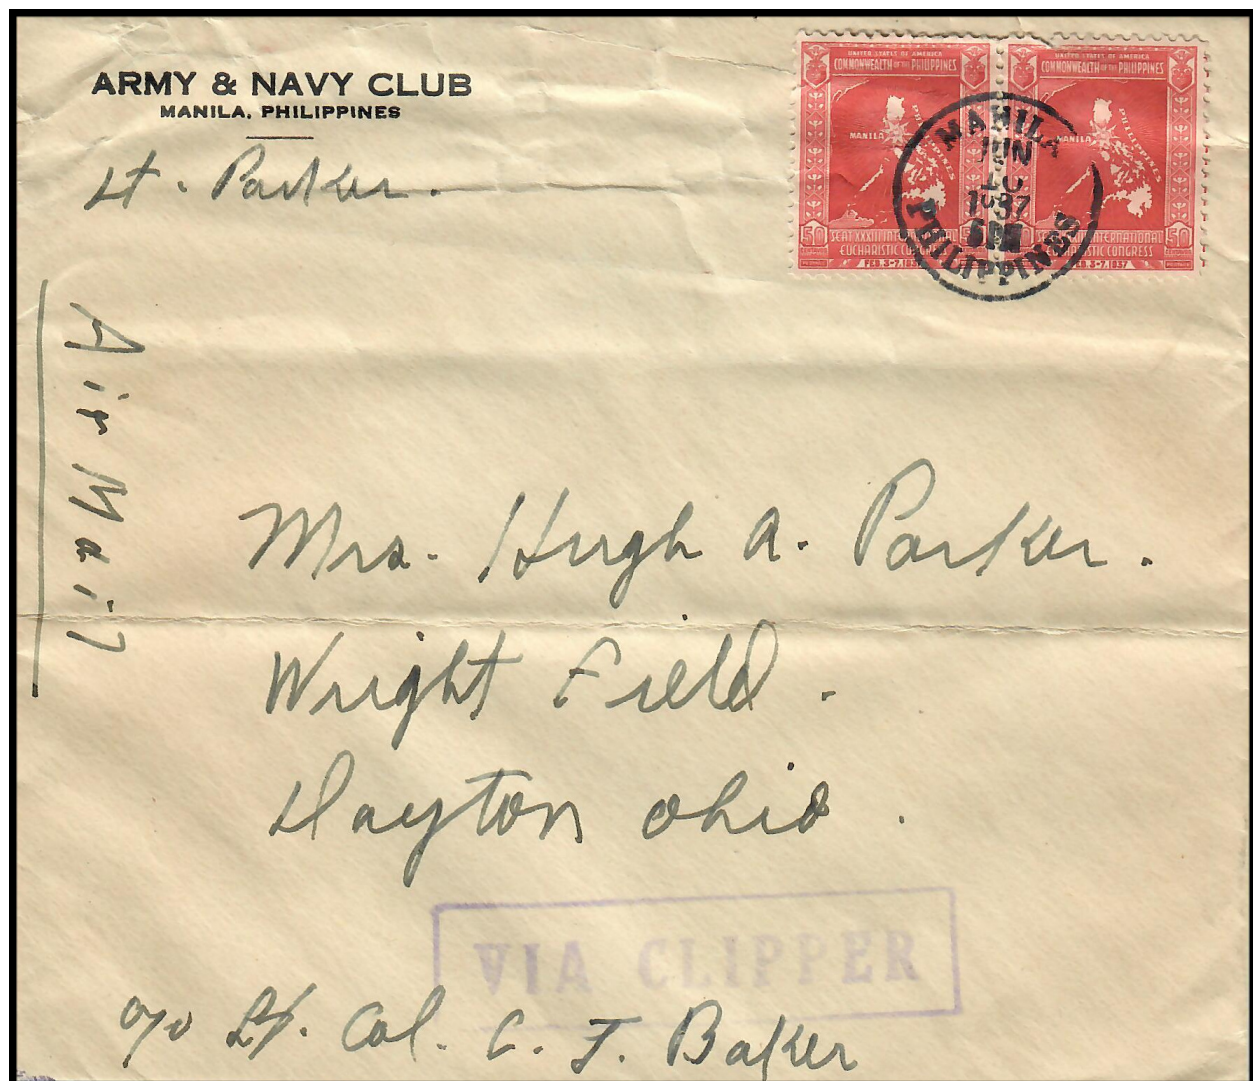 ARMY & NAVY CLUB
MANILA, PHILIPPINES
Lt. Parker.
Air Mail
UNITED STATES OF AMERICA
COMMONWEALTH OF THE PHILIPPINES
MANILA
PHILIPPINES
50
SEAT XXXIII INTERNATIONAL
EUCHARISTIC CONGRESS
FEB. 3-7, 1937
UNITED STATES OF AMERICA
COMMONWEALTH OF THE PHILIPPINES
MANILA
PHILIPPINES
INTERNATIONAL 50
CONGRESS
FEB. 3-7, 1937
MANILA
JUN
1937
PHILIPPINES
Mrs. Hugh A. Parker.
Wright Field.
Dayton Ohio.
VIA CLIPPER
c/o Lt. Col. C. F. Baker